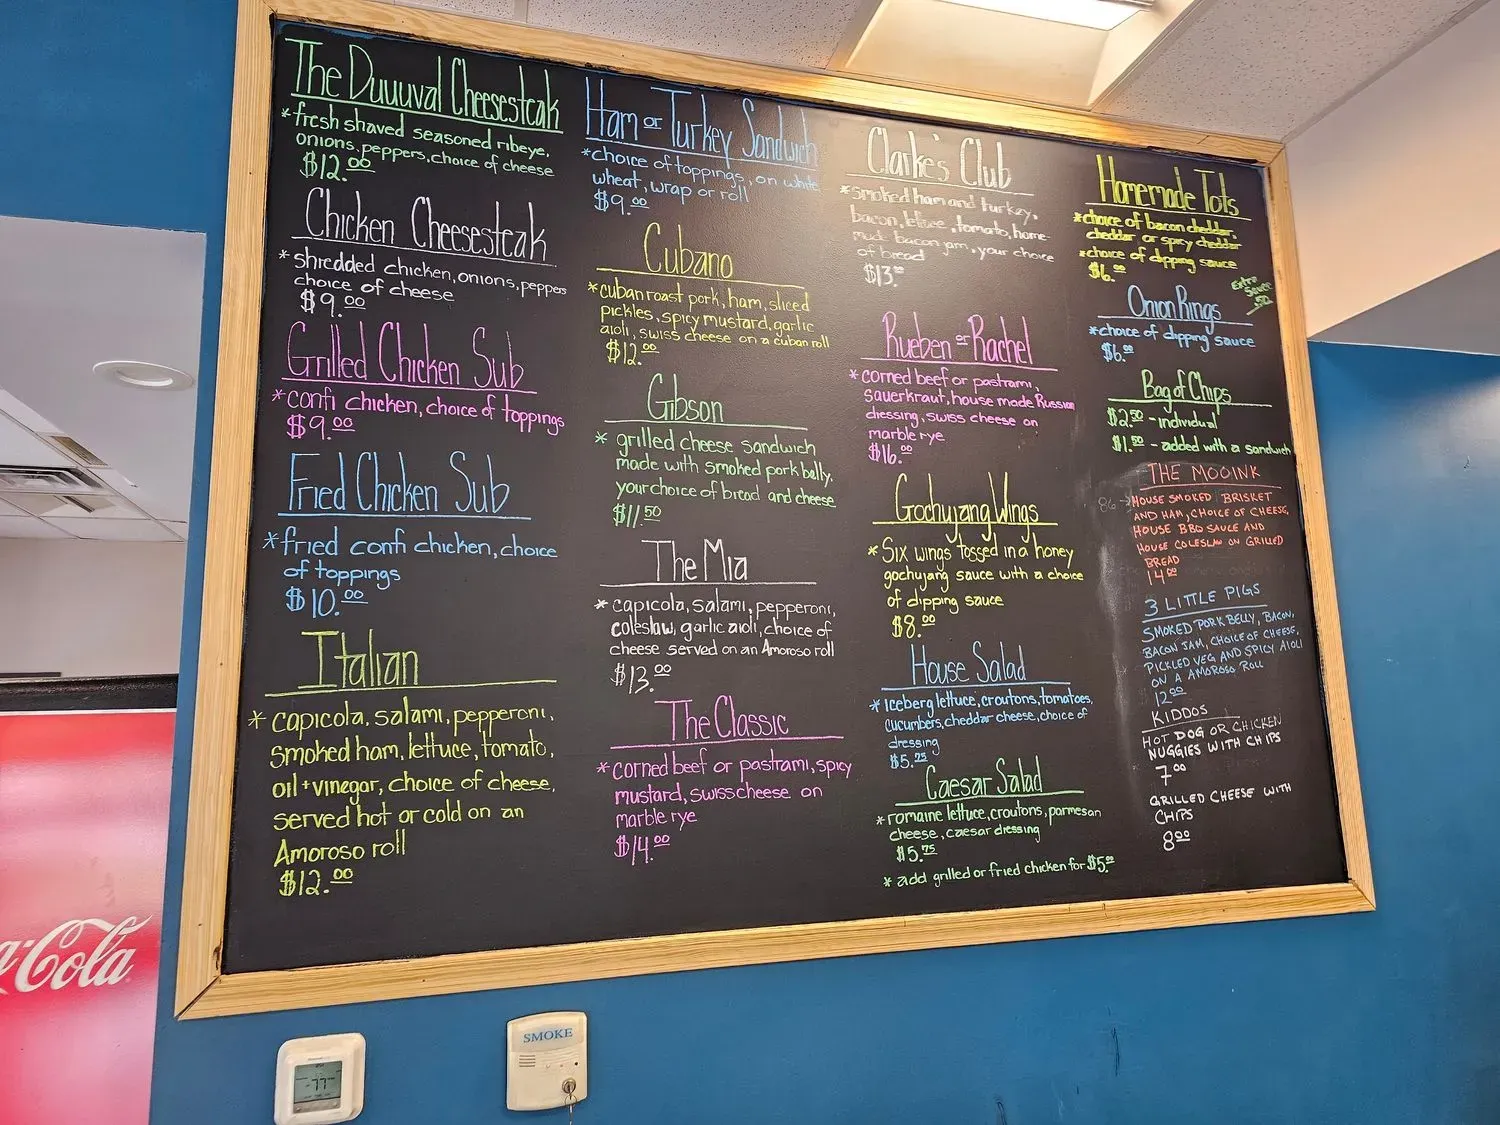 The Duuuval Cheesesteak
*fresh shaved seasoned ribeye,
onions, peppers, choice of cheese
$12.00
Chicken Cheesesteak
*shredded chicken, onions, peppers
choice of cheese
$9.00
Grilled Chicken Sub
*confi chicken, choice of toppings
$9.00
Fried Chicken Sub
*fried confi chicken, choice
of toppings
$10.00
Italian
*capicola, salami, pepperoni,
smoked ham, lettuce, tomato,
oil + vinegar, choice of cheese,
served hot or cold on an
Amoroso roll
$12.00
Ham or Turkey Sandwich
*choice of toppings, on white
wheat, wrap or roll
$9.00
Cubano
*cuban roast pork, ham, sliced
pickles, spicy mustard, garlic
aioli, swiss cheese on a cuban roll
$12.00
Gibson
* grilled cheese sandwich
made with smoked pork belly,
your choice of bread and cheese
$11.50
The Mia
* capicola, salami, pepperoni,
coleslaw, garlic aioli, choice of
cheese served on an Amoroso roll
$13.00
The Classic
*corned beef or pastrami, spicy
mustard, swiss cheese on
marble rye
$14.00
Clarke's Club
*smoked ham and turkey,
bacon, lettuce, tomato, home-
made bacon jam, your choice
of bread
$13.00
Rueben or Rachel
*corned beef or pastrami,
sauerkraut, house made Russian
dressing, swiss cheese on
marble rye
$16.00
Gochujang Wings
*Six wings tossed in a honey
gochujang sauce with a choice
of dipping sauce
$8.00
House Salad
*Iceberg lettuce, croutons, tomatoes,
cucumbers, cheddar cheese, choice of
dressing
$5.25
Caesar Salad
*romaine lettuce, croutons, parmesan
cheese, caesar dressing
$5.75
* add grilled or fried chicken for $5.00
Homemade Tots
*choice of bacon cheddar,
cheddar or spicy cheddar
*choice of dipping sauce
$6.00
Extra
Sauce
.50
Onion Rings
*choice of dipping sauce
$6.00
Bag of Chips
$2.50 - individual
$1.50 - added with a sandwich
THE MOOINK
86 → HOUSE SMOKED BRISKET
AND HAM, CHOICE OF CHEESE,
HOUSE BBQ SAUCE AND
HOUSE COLESLAW ON GRILLED
BREAD
14.00
3 LITTLE PIGS
SMOKED PORK BELLY, BACON,
BACON JAM, CHOICE OF CHEESE,
PICKLED VEG AND SPICY AIOLI
ON A AMOROSO ROLL
12.00
KIDDOS
HOT DOG OR CHICKEN
NUGGIES WITH CHIPS
7.00
GRILLED CHEESE WITH
CHIPS
8.00
Cola
77
SMOKE